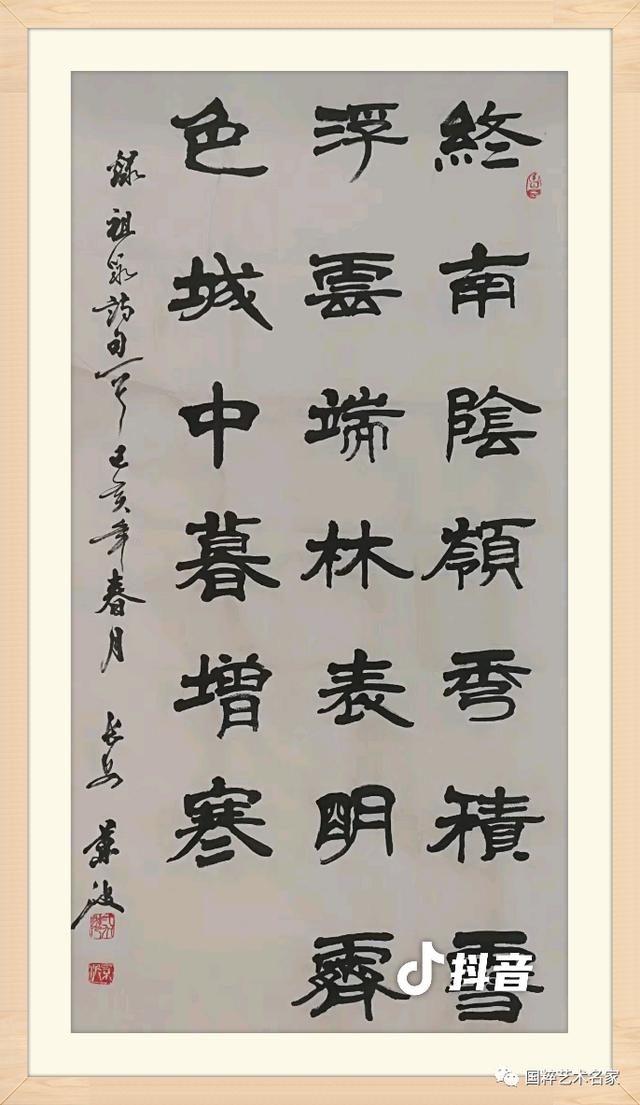 終南陰嶺秀積雪
浮雲端林表明霽
色城中暮增寒
錄祖詠詩句 己亥年春月 长安
抖音
国粹艺术名家